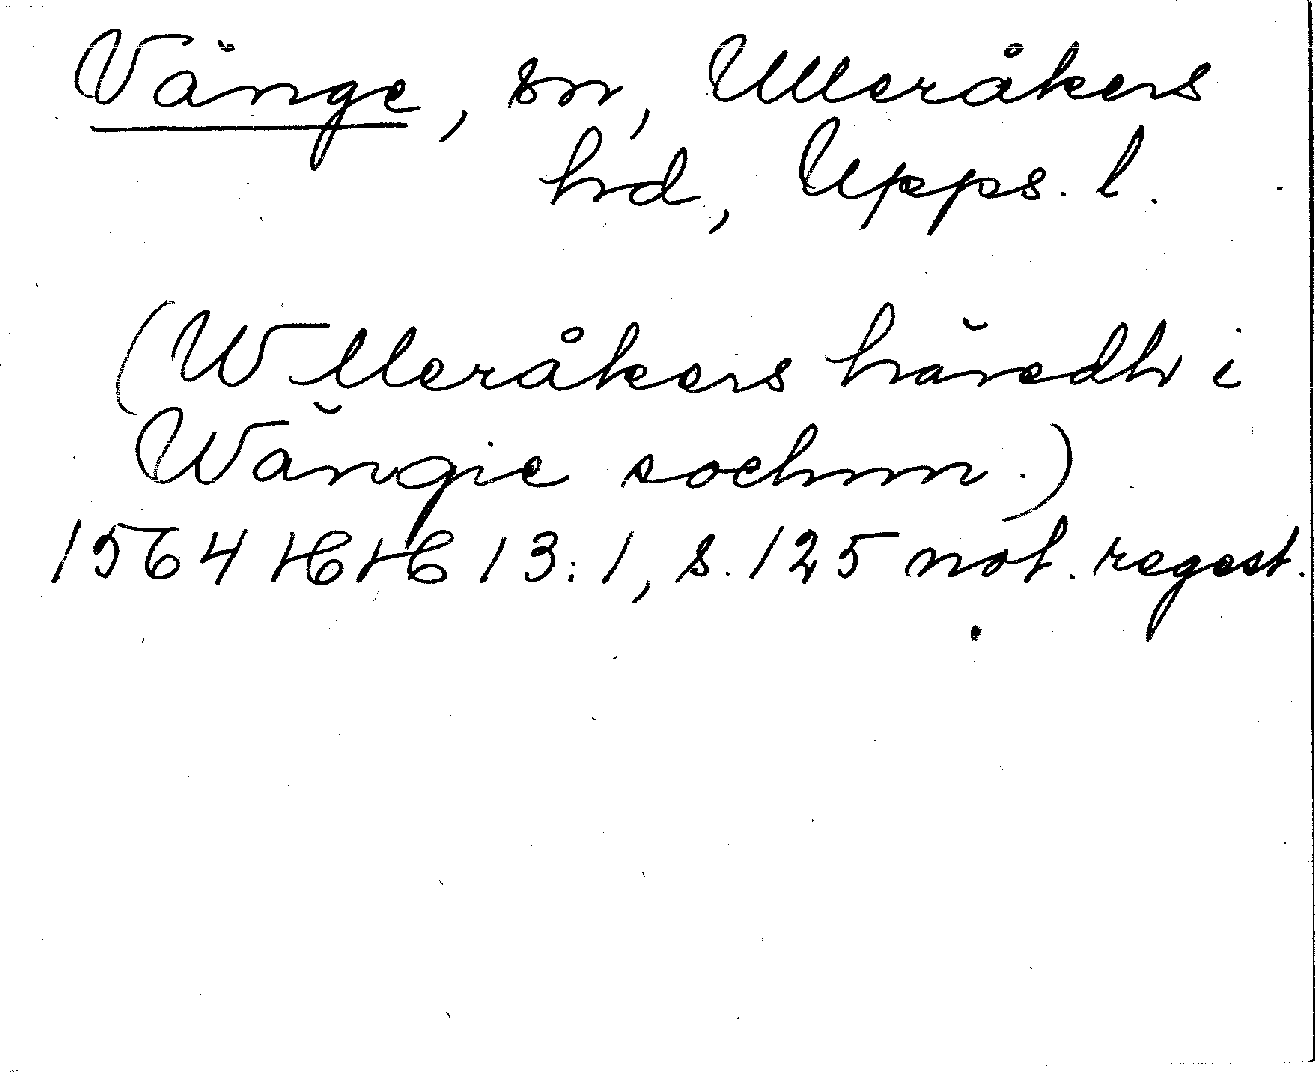 Vänge, sn, Ulleråkers
hd, Upps. l.
(Wlleråkers häredh i
Wängie sochnn.)
1564 HH 13:1, s. 125 not. regest.